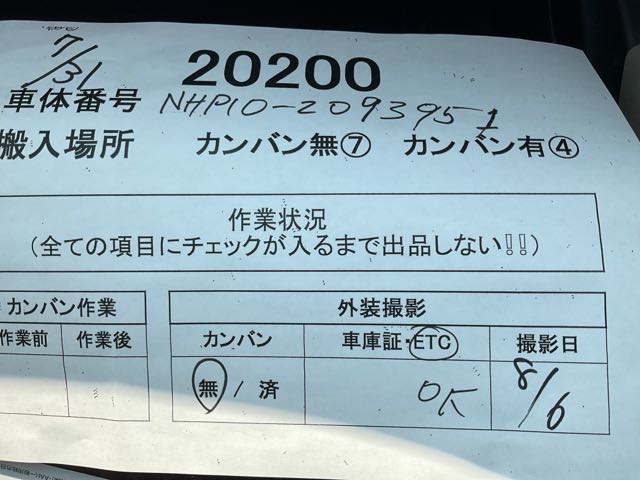 7/31
20200
車体番号 NHP10-2093951
搬入場所 カンバン無⑦ カンバン有④
作業状況
(全ての項目にチェックが入るまで出品しない!!)
カンバン作業 外装撮影
作業前 作業後 カンバン 車庫証・ETC 撮影日
無 / 済 OK 8/6